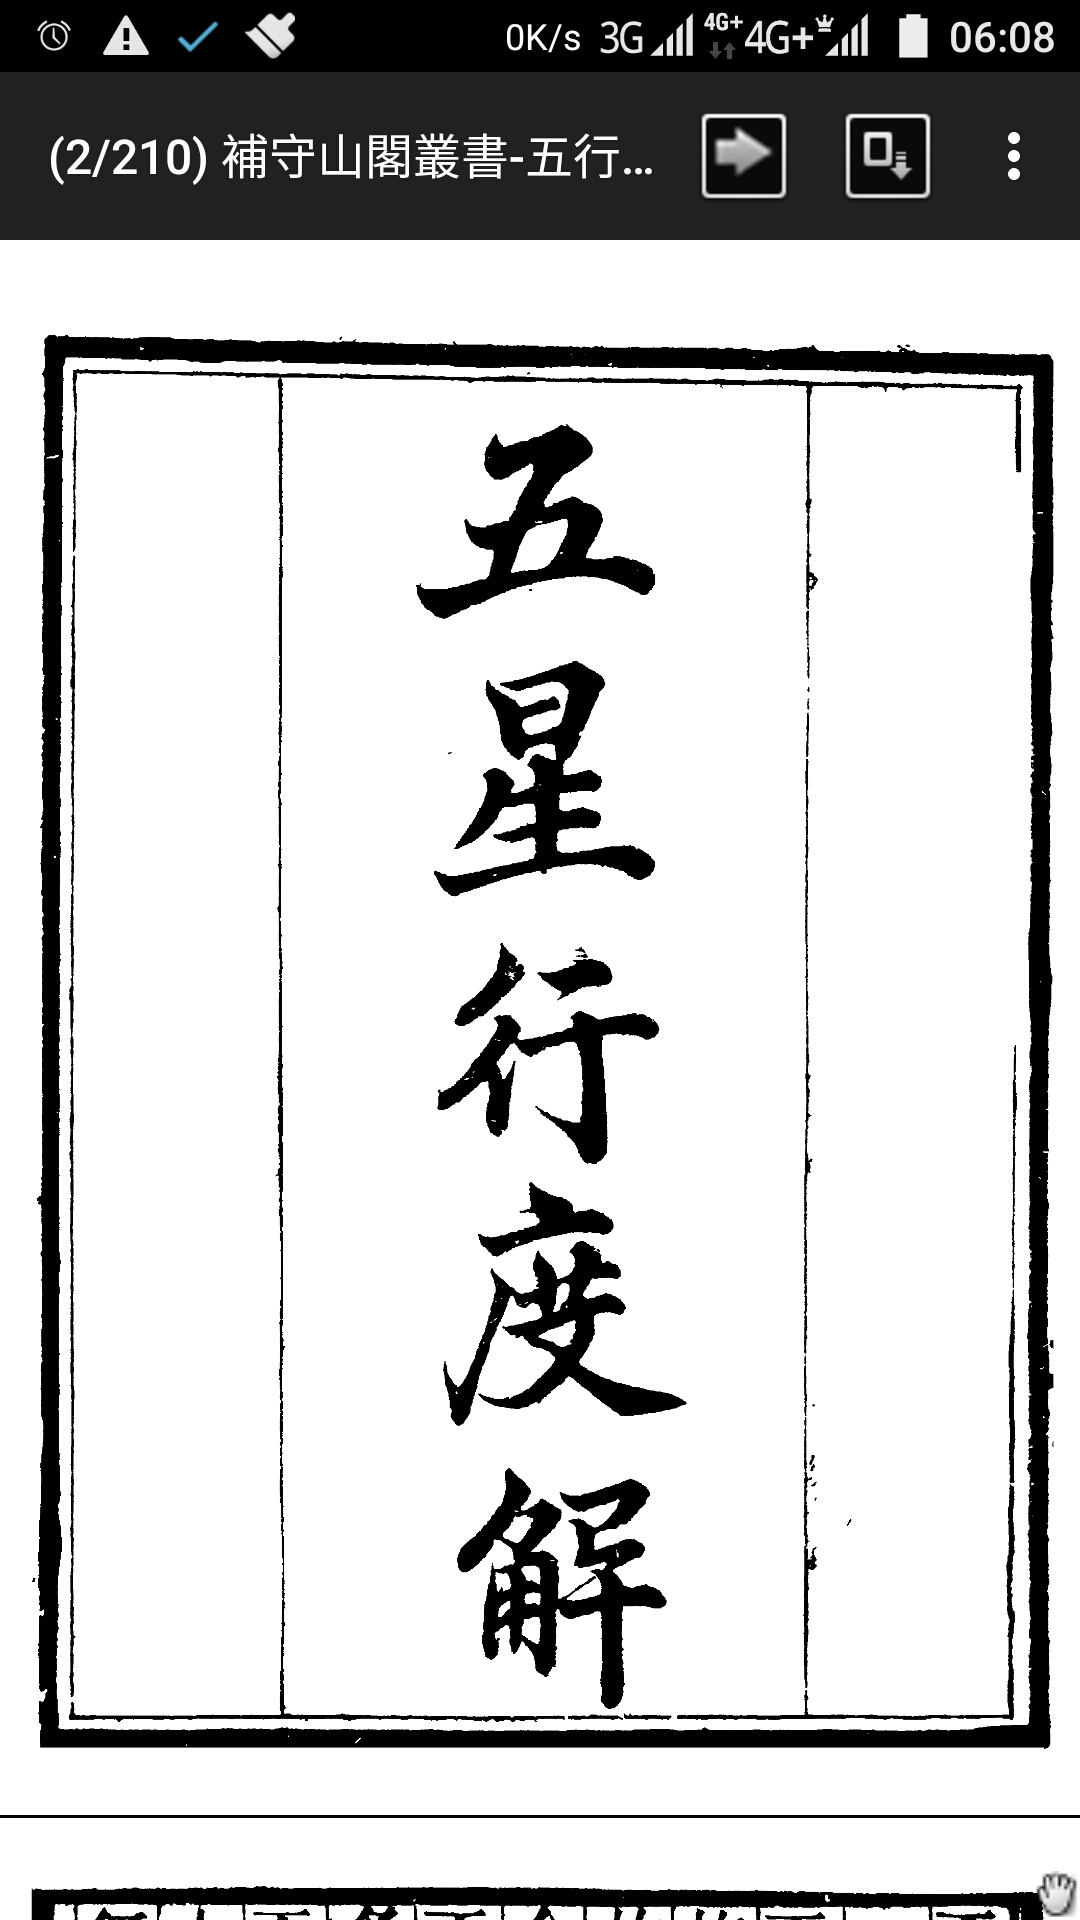 0K/s 3G 4G+ 4G+ 06:08
(2/210) 補守山閣叢書-五行...
五星行度解